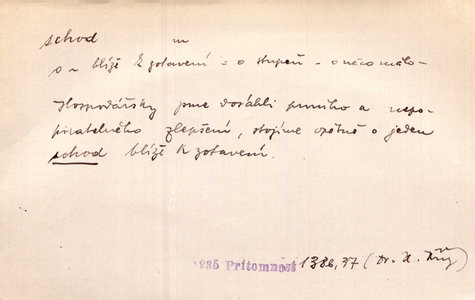 schod m
o ~ blíže k zotavení = o stupeň - o něco málo -
Hospodářsky jsme dosáhli prvního a nepo-
piratelného zlepšení, stojíme opětně o jeden
schod blíže k zotavení.
1935 Přítomnost 1386, 37 (Dr. H.